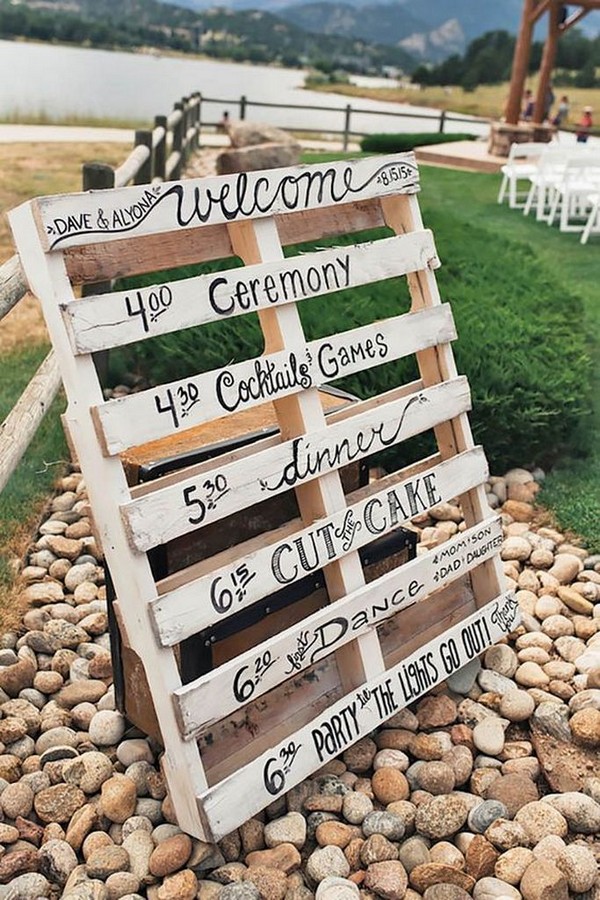 DAVE & ALYONA welcome 8.15.15
4:00 Ceremony
4:30 Cocktails & Games
5:30 dinner
6:15 CUT the CAKE
6:20 first Dance MOM+SON
DAD+DAUGHTER
6:30 PARTY til THE LIGHTS GO OUT! Thank You